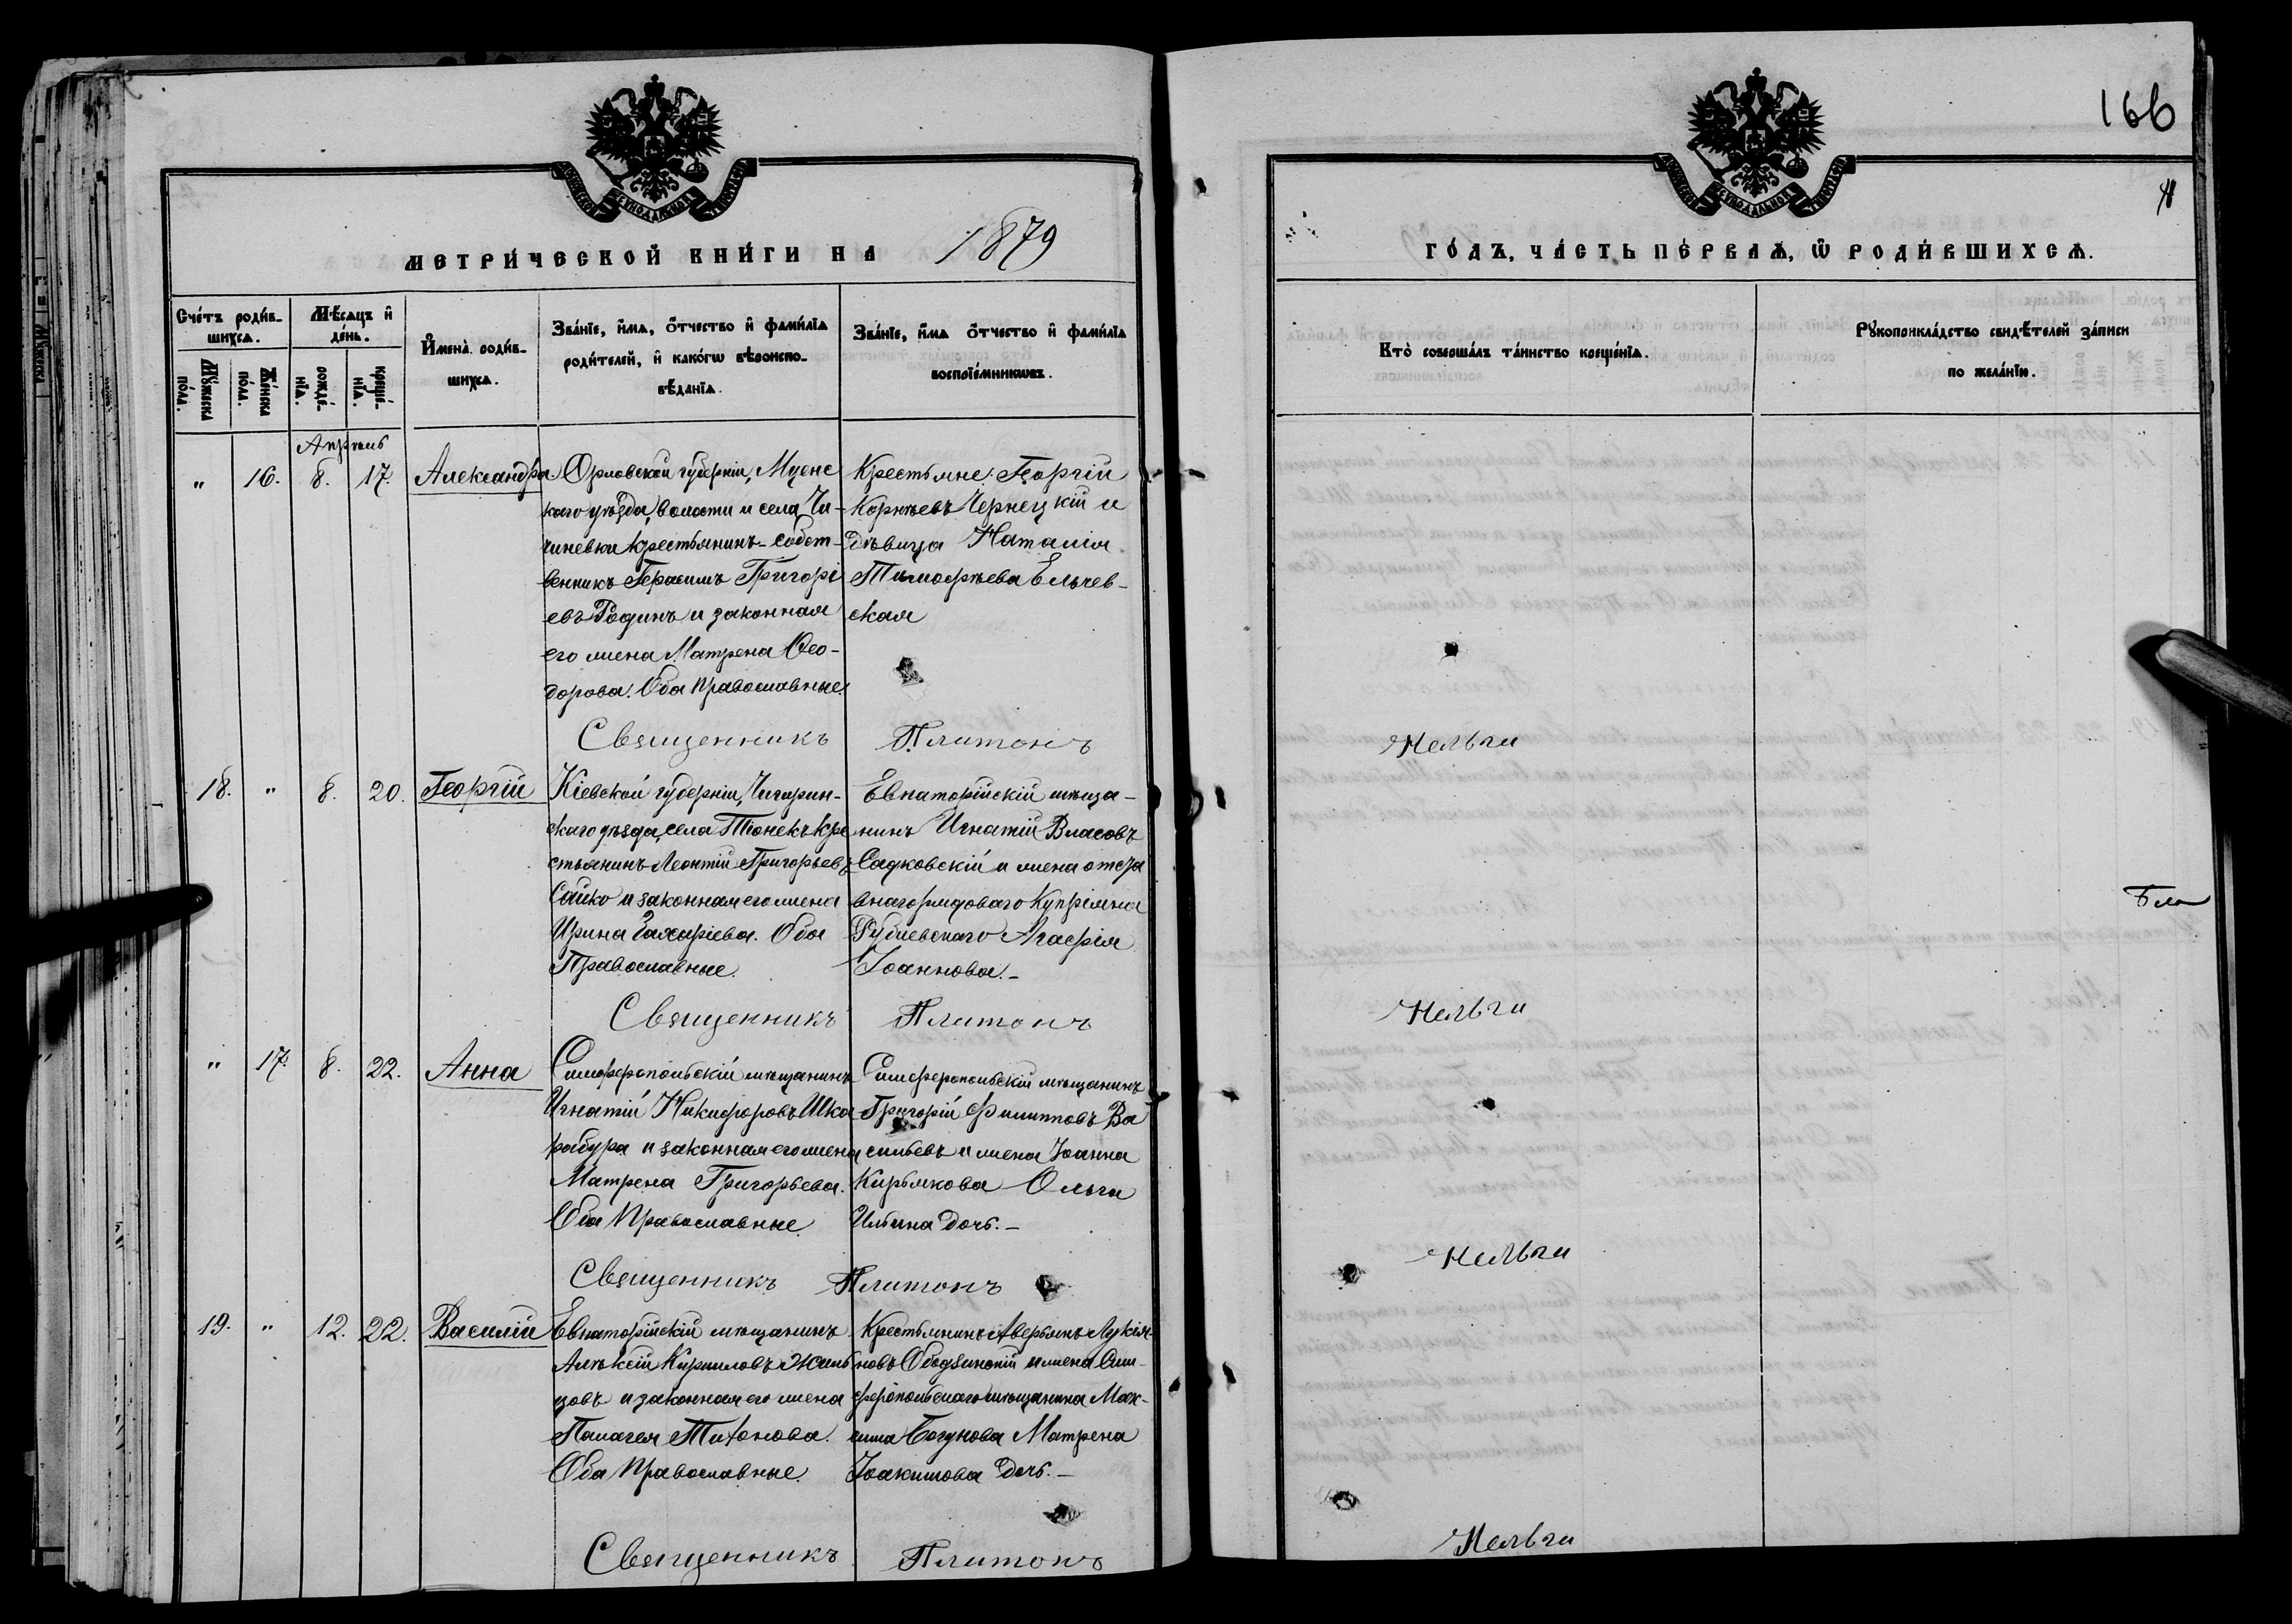 166
МЕТРИ́ЧЕСКОЙ КНИ́ГИ НА 1879
ГО́ДЪ, ЧА́СТЬ ПЕ́РВАѦ, Ѿ РОДИ́ВШИХСѦ.
Сче́тъ роди́вшихсѧ.
Мꙋ́жеска по́ла.
Же́нска по́ла.
Мѣ́сѧцъ и҆ де́нь.
рожде́нїѧ.
креще́нїѧ.
И҆мена̀ роди́вшихсѧ.
Зва́нїе, и҆́мѧ, ѻ҆́тчество и҆ фами́лїѧ
роди́телей, и҆ како́гѡ вѣроиспо-
вѣ́данїѧ.
Зва́нїе, и҆́мѧ ѻ҆́тчество и҆ фами́лїѧ
воспрїе́мникѡвъ.
Кто̀ соверша́лъ та́инство креще́нїѧ.
Рꙋкоприкла́дство свидѣ́телей за́писи
по жела́нїю.
Апрѣль
" 16. 8. 17. Александра
Орловской губерніи, Мценс
каго уѣзда, волости и села Чи-
чиневки крестьянинъ-собст-
венникъ Герасимъ Григорі
евъ Родинъ и законная
его жена Матрена Ѳео-
дорова. Оба православные.
Крестьяне: Георгій
Корнѣевъ Чернецкій и
дѣвица Наталія
Тимофѣева Ельчев-
ская
Священникъ Платонъ Мельги
18. " 8. 20. Георгій
Кіевской губерніи, Чигирин-
скаго уѣзда, села Тіонекъ кре
стьянинъ Леонтій Григорьевъ
Сайко и законная его жена
Ирина Захаріева. Оба
Православные.
Евпаторійскій мѣща-
нинъ Игнатій Власовъ
Садковскій и жена отста
внаго рядоваго Купріяна
Рублевскаго Агафія
Іоаннова.-
Священникъ Платонъ Мельги
" 17. 8. 22. Анна
Симферопольскій мѣщанинъ
Игнатій Никифоровъ Шка
рабура и законная его жена
Матрена Григорьева.
Оба Православные.
Симферопольскій мѣщанинъ
Григорій Филипповъ Ва
сильевъ и жена Іоанна
Кирьякова Ольга
Ильина дочь.-
Священникъ Платонъ Мельги
19. " 12. 22. Василій
Евпаторійскій мѣщанинъ
Алѣксій Кирилловъ Жиль
цовъ и законная его жена
Палагея Тихонова.
Оба Православные.
Крестьянинъ Аверьянъ Лукія-
новъ Ободзинскій и жена Сим-
феропольскаго мѣщанина Мак-
сима Богунова Матрена
Іоакимова дочь.-
Священникъ Платонъ Мельги